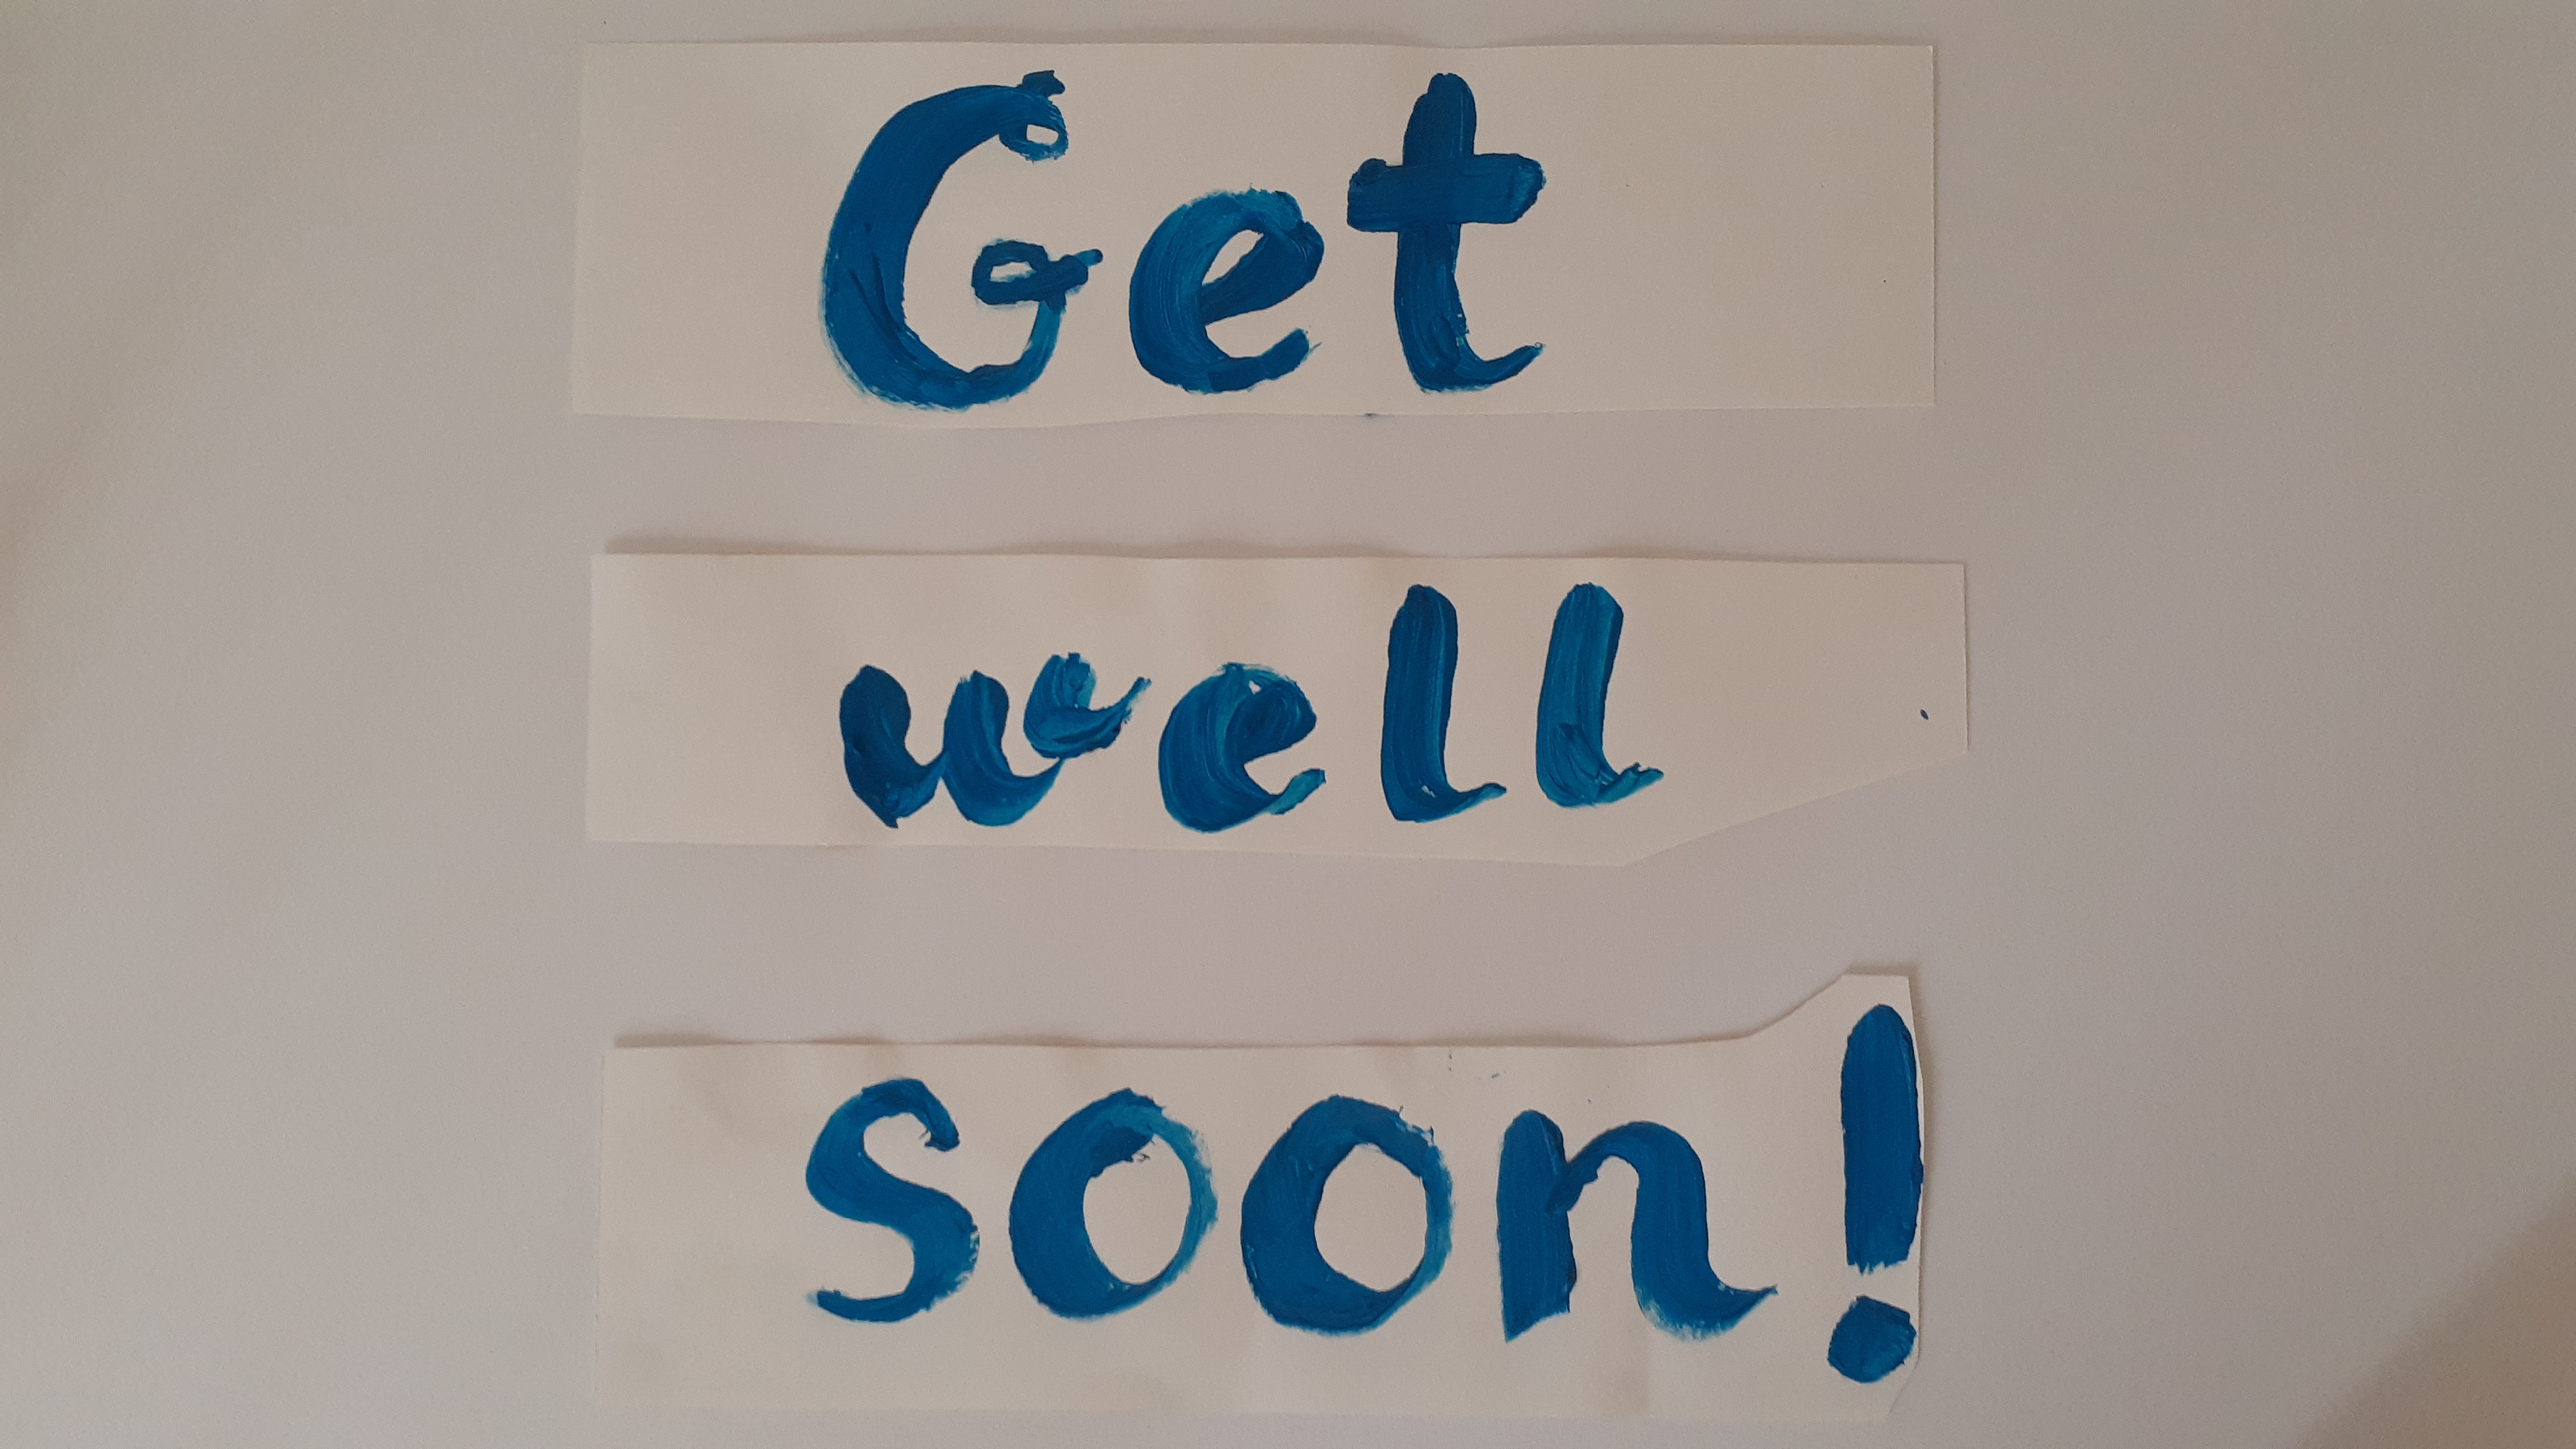 Get
well
soon!